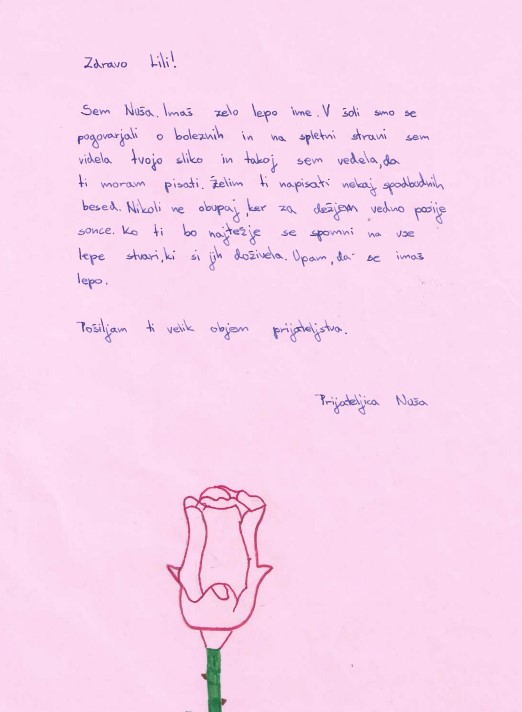 Zdravo Lili!
Sem Nuša. Imaš zelo lepo ime. V šoli smo se
pogovarjali o boleznih in na spletni strani sem
videla tvojo sliko in takoj sem vedela, da
ti moram pisati. Želim ti napisati nekaj spodbudnih
besed. Nikoli ne obupaj, ker za dežjem vedno posije
sonce. Ko ti bo najtežje se spomni na vse
lepe stvari, ki si jih doživela. Upam, da se imaš
lepo.
Pošiljam ti velik objem prijateljstva.
Prijateljica Nuša